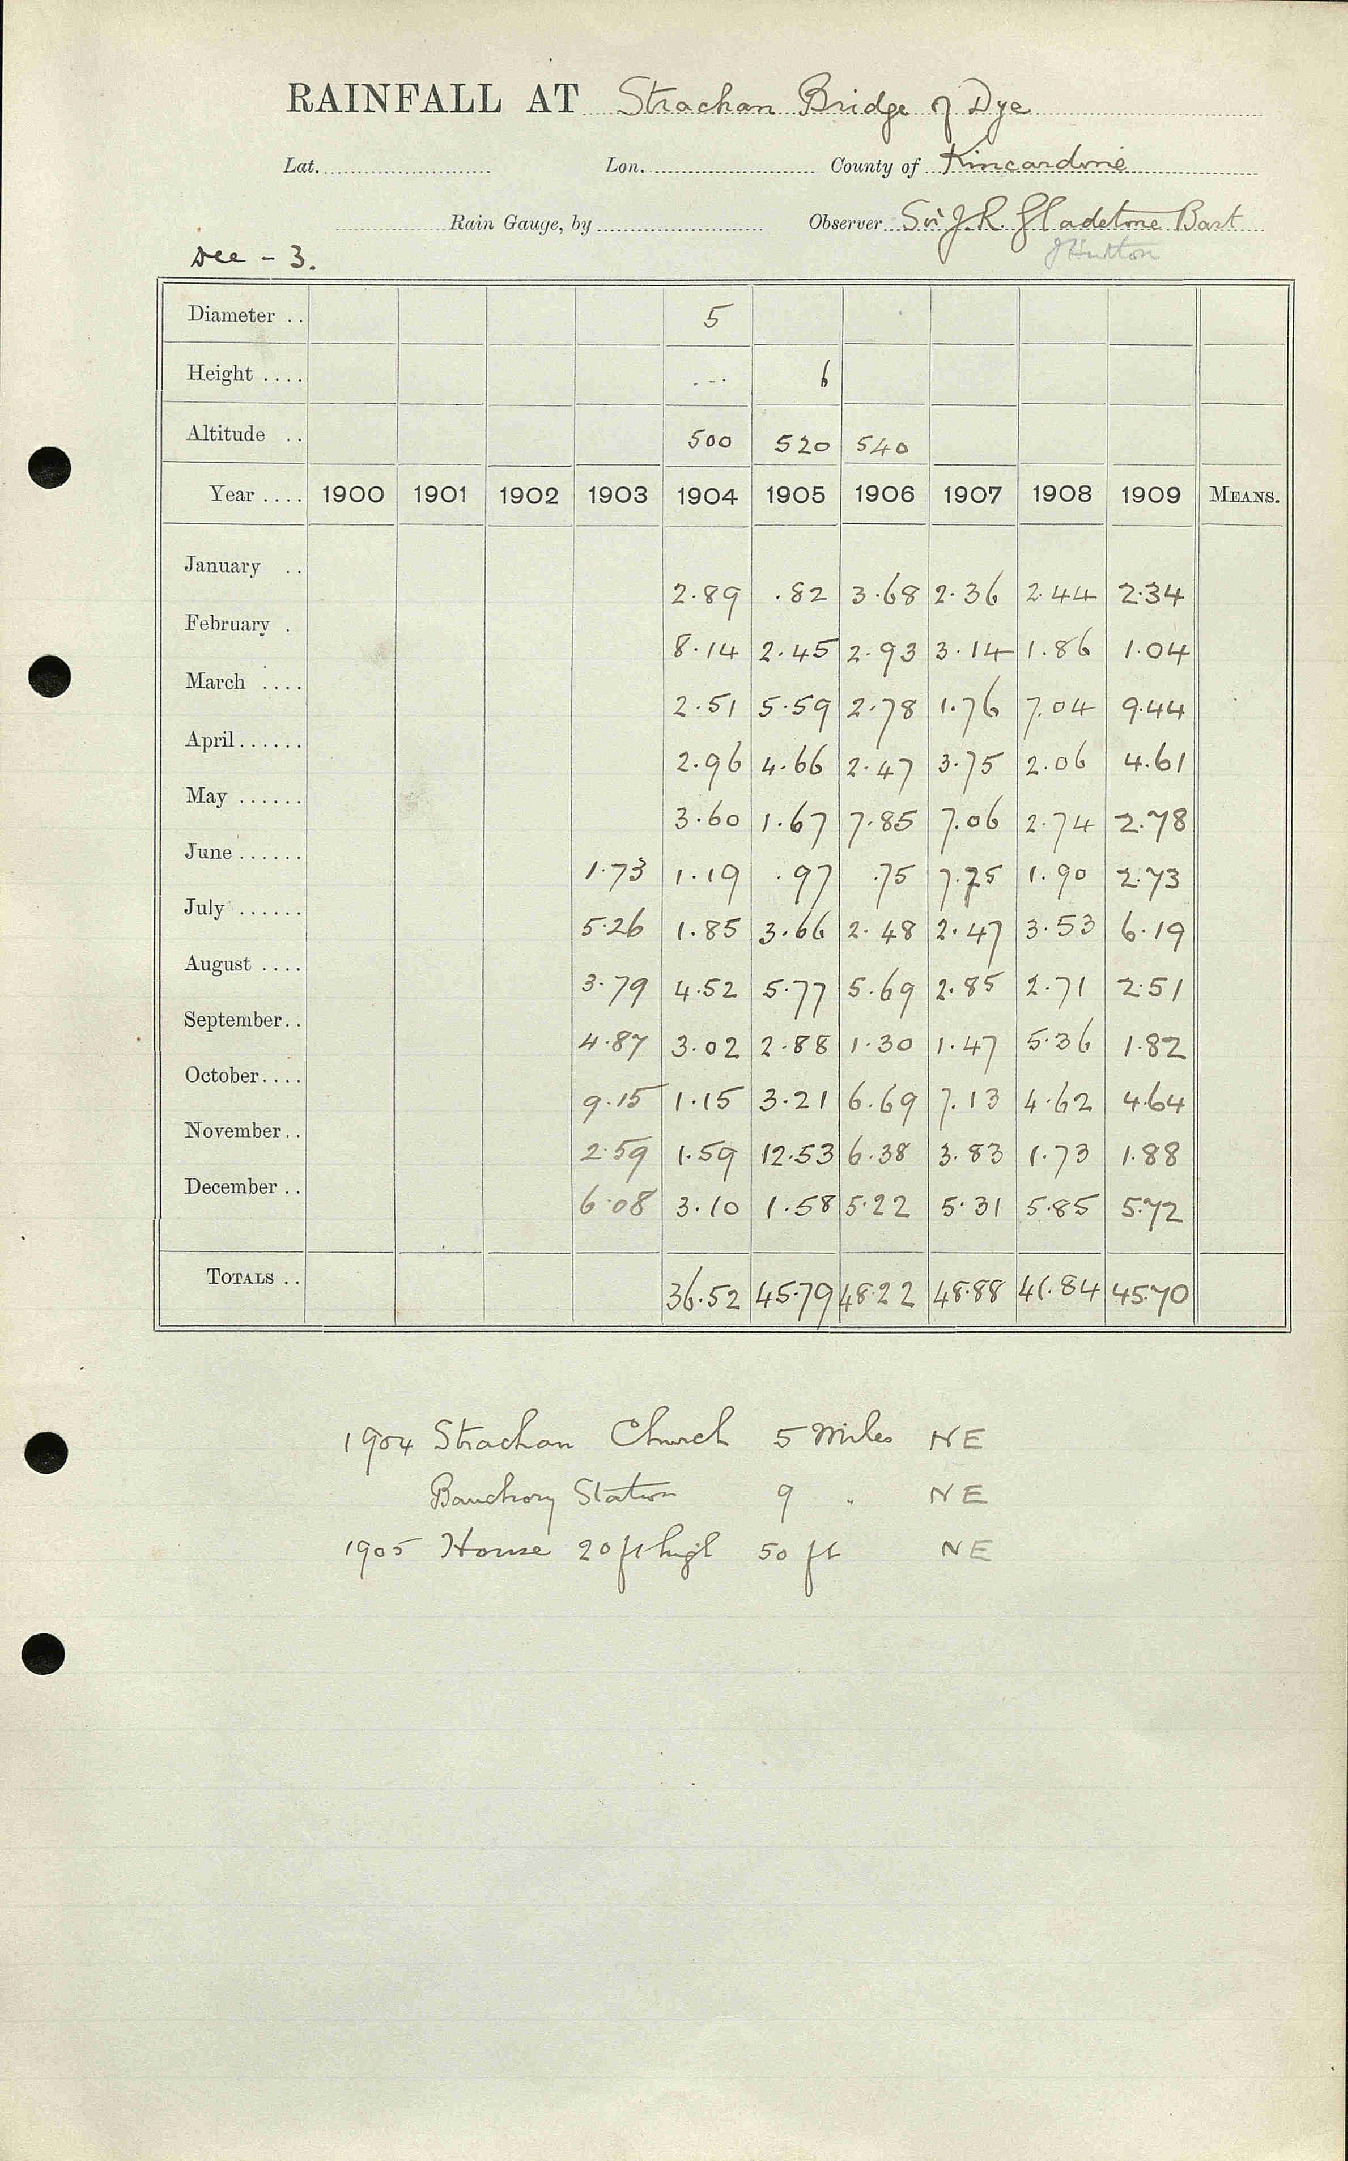 RAINFALL AT Strachan Bridge of Dye
Lat. Lon. County of Kincardine
Rain Gauge, by Observer Sir J.R. Gladstone Bart
Dee - 3. J Hutton
Diameter .. 5
Height .... ... 6
Altitude .. 500 520 540
Year .... 1900 1901 1902 1903 1904 1905 1906 1907 1908 1909 MEANS.
January .. 2.89 .82 3.68 2.36 2.44 2.34
February . 8.14 2.45 2.93 3.14 1.86 1.04
March .... 2.51 5.59 2.78 1.76 7.04 9.44
April...... 2.96 4.66 2.47 3.75 2.06 4.61
May ...... 3.60 1.67 7.85 7.06 2.74 2.78
June...... 1.73 1.19 .97 .75 7.75 1.90 2.73
July ...... 5.26 1.85 3.66 2.48 2.47 3.53 6.19
August .... 3.79 4.52 5.77 5.69 2.85 2.71 2.51
September.. 4.87 3.02 2.88 1.30 1.47 5.36 1.82
October.... 9.15 1.15 3.21 6.69 7.13 4.62 4.64
November.. 2.59 1.59 12.53 6.38 3.83 1.73 1.88
December.. 6.08 3.10 1.58 5.22 5.31 5.85 5.72
TOTALS .. 36.52 45.79 48.22 48.88 41.84 45.70
1904 Strachan Church 5 Miles NE
Banchory Station 9 " NE
1905 House 20 ft high 50 ft NE